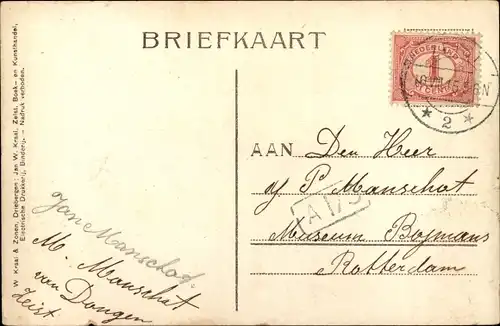 W. Kraal & Zonen, Driebergen: Jan W. Kraal, Zeist, Boek- en Kunsthandel,
Electrische Drukkerij, Binderij. — Nadruk verboden.
BRIEFKAART
NEDERLAND
1
CENT
2
AAN Den Heer
P Manschot
A 173
Museum Boymans
Rotterdam
Jan Manschot.
M. Manschot
van Dongen
Zeist